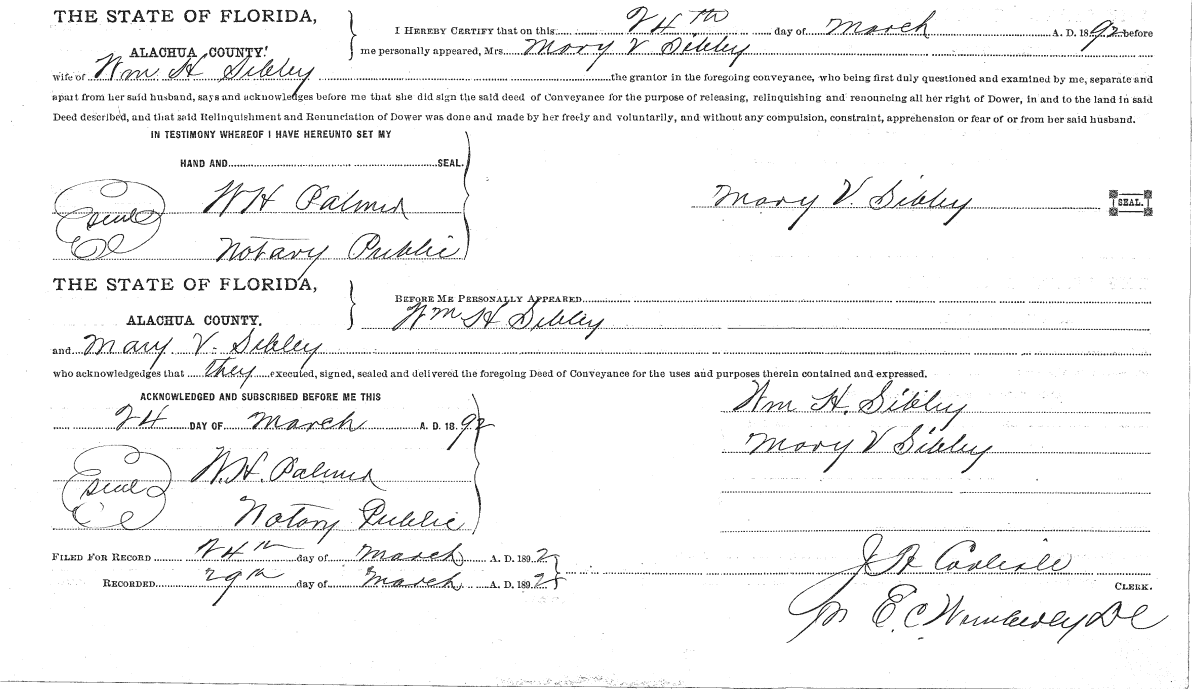 THE STATE OF FLORIDA,
ALACHUA COUNTY.
I HEREBY CERTIFY that on this 24th day of March A. D. 1892 before
me personally appeared, Mrs. Mary V Sibley
wife of Wm H Sibley the grantor in the foregoing conveyance, who being first duly questioned and examined by me, separate and
apart from her said husband, says and acknowledges before me that she did sign the said deed of Conveyance for the purpose of releasing, relinquishing and renouncing all her right of Dower, in and to the land in said
Deed described, and that said Relinquishment and Renunciation of Dower was done and made by her freely and voluntarily, and without any compulsion, constraint, apprehension or fear of or from her said husband.
IN TESTIMONY WHEREOF I HAVE HEREUNTO SET MY
HAND AND SEAL.
Seal W H Palmer
Mary V Sibley SEAL.
Notary Public
THE STATE OF FLORIDA,
ALACHUA COUNTY.
BEFORE ME PERSONALLY APPEARED
Wm H Sibley
and Mary V. Sibley
who acknowledgedges that they executed, signed, sealed and delivered the foregoing Deed of Conveyance for the uses and purposes therein contained and expressed.
ACKNOWLEDGED AND SUBSCRIBED BEFORE ME THIS
24 DAY OF March A. D. 1892
Wm H. Sibley
Mary V Sibley
Seal W. H. Palmer
Notary Public
FILED FOR RECORD 24th day of March A. D. 1892
RECORDED 29th day of March A. D. 1892
J A Carlisle
CLERK.
E. C. Wimberley DC